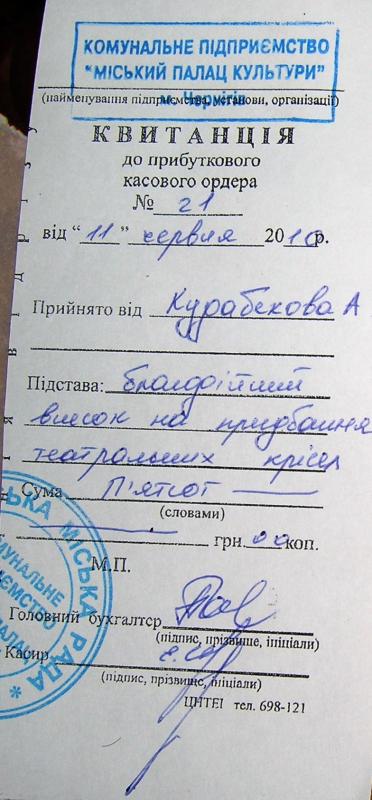 КОМУНАЛЬНЕ ПІДПРИЄМСТВО
"МІСЬКИЙ ПАЛАЦ КУЛЬТУРИ"
м. Чернігів
(найменування підприємства, установи, організації)
КВИТАНЦІЯ
до прибуткового
касового ордера
№ 21
від "11" червня 2010р.
Прийнято від Курабекова А
Підстава: благодійний
внесок на придбання
театральних крісел
Сума П'ятсот
(словами)
грн. 00 коп.
М.П.
Головний бухгалтер
(підпис, прізвище, ініціали)
Касир
(підпис, прізвище, ініціали)
ЦНТЕІ тел. 698-121
СЬКА МІСЬКА РАДА *